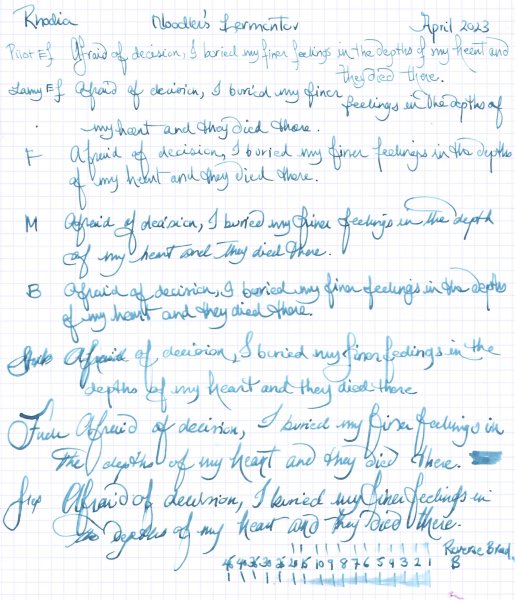 Rhodia Noodler's Fermentor April 2023
Pilot Ef Afraid of decision, I buried my finer feelings in the depths of my heart and
they died there.
Lamy Ef Afraid of decision, I buried my finer feelings in the depths of
my heart and they died there.
F Afraid of decision, I buried my finer feelings in the depths
of my heart and they died there.
M Afraid of decision, I buried my finer feelings in the depth
of my heart and they died there.
B Afraid of decision, I buried my finer feelings in the depths
of my heart and they died there.
Stub Afraid of decision, I buried my finer feelings in the
depths of my heart and they died there
Fude Afraid of decision, I buried my finer feelings in
the depths of my heart and they died there.
Afraid of decision, I buried my finer feelings in
the depths of my heart and they died there.
Reverse
45 40 35 30 25 20 15 10 9 8 7 6 5 4 3 2 1 B